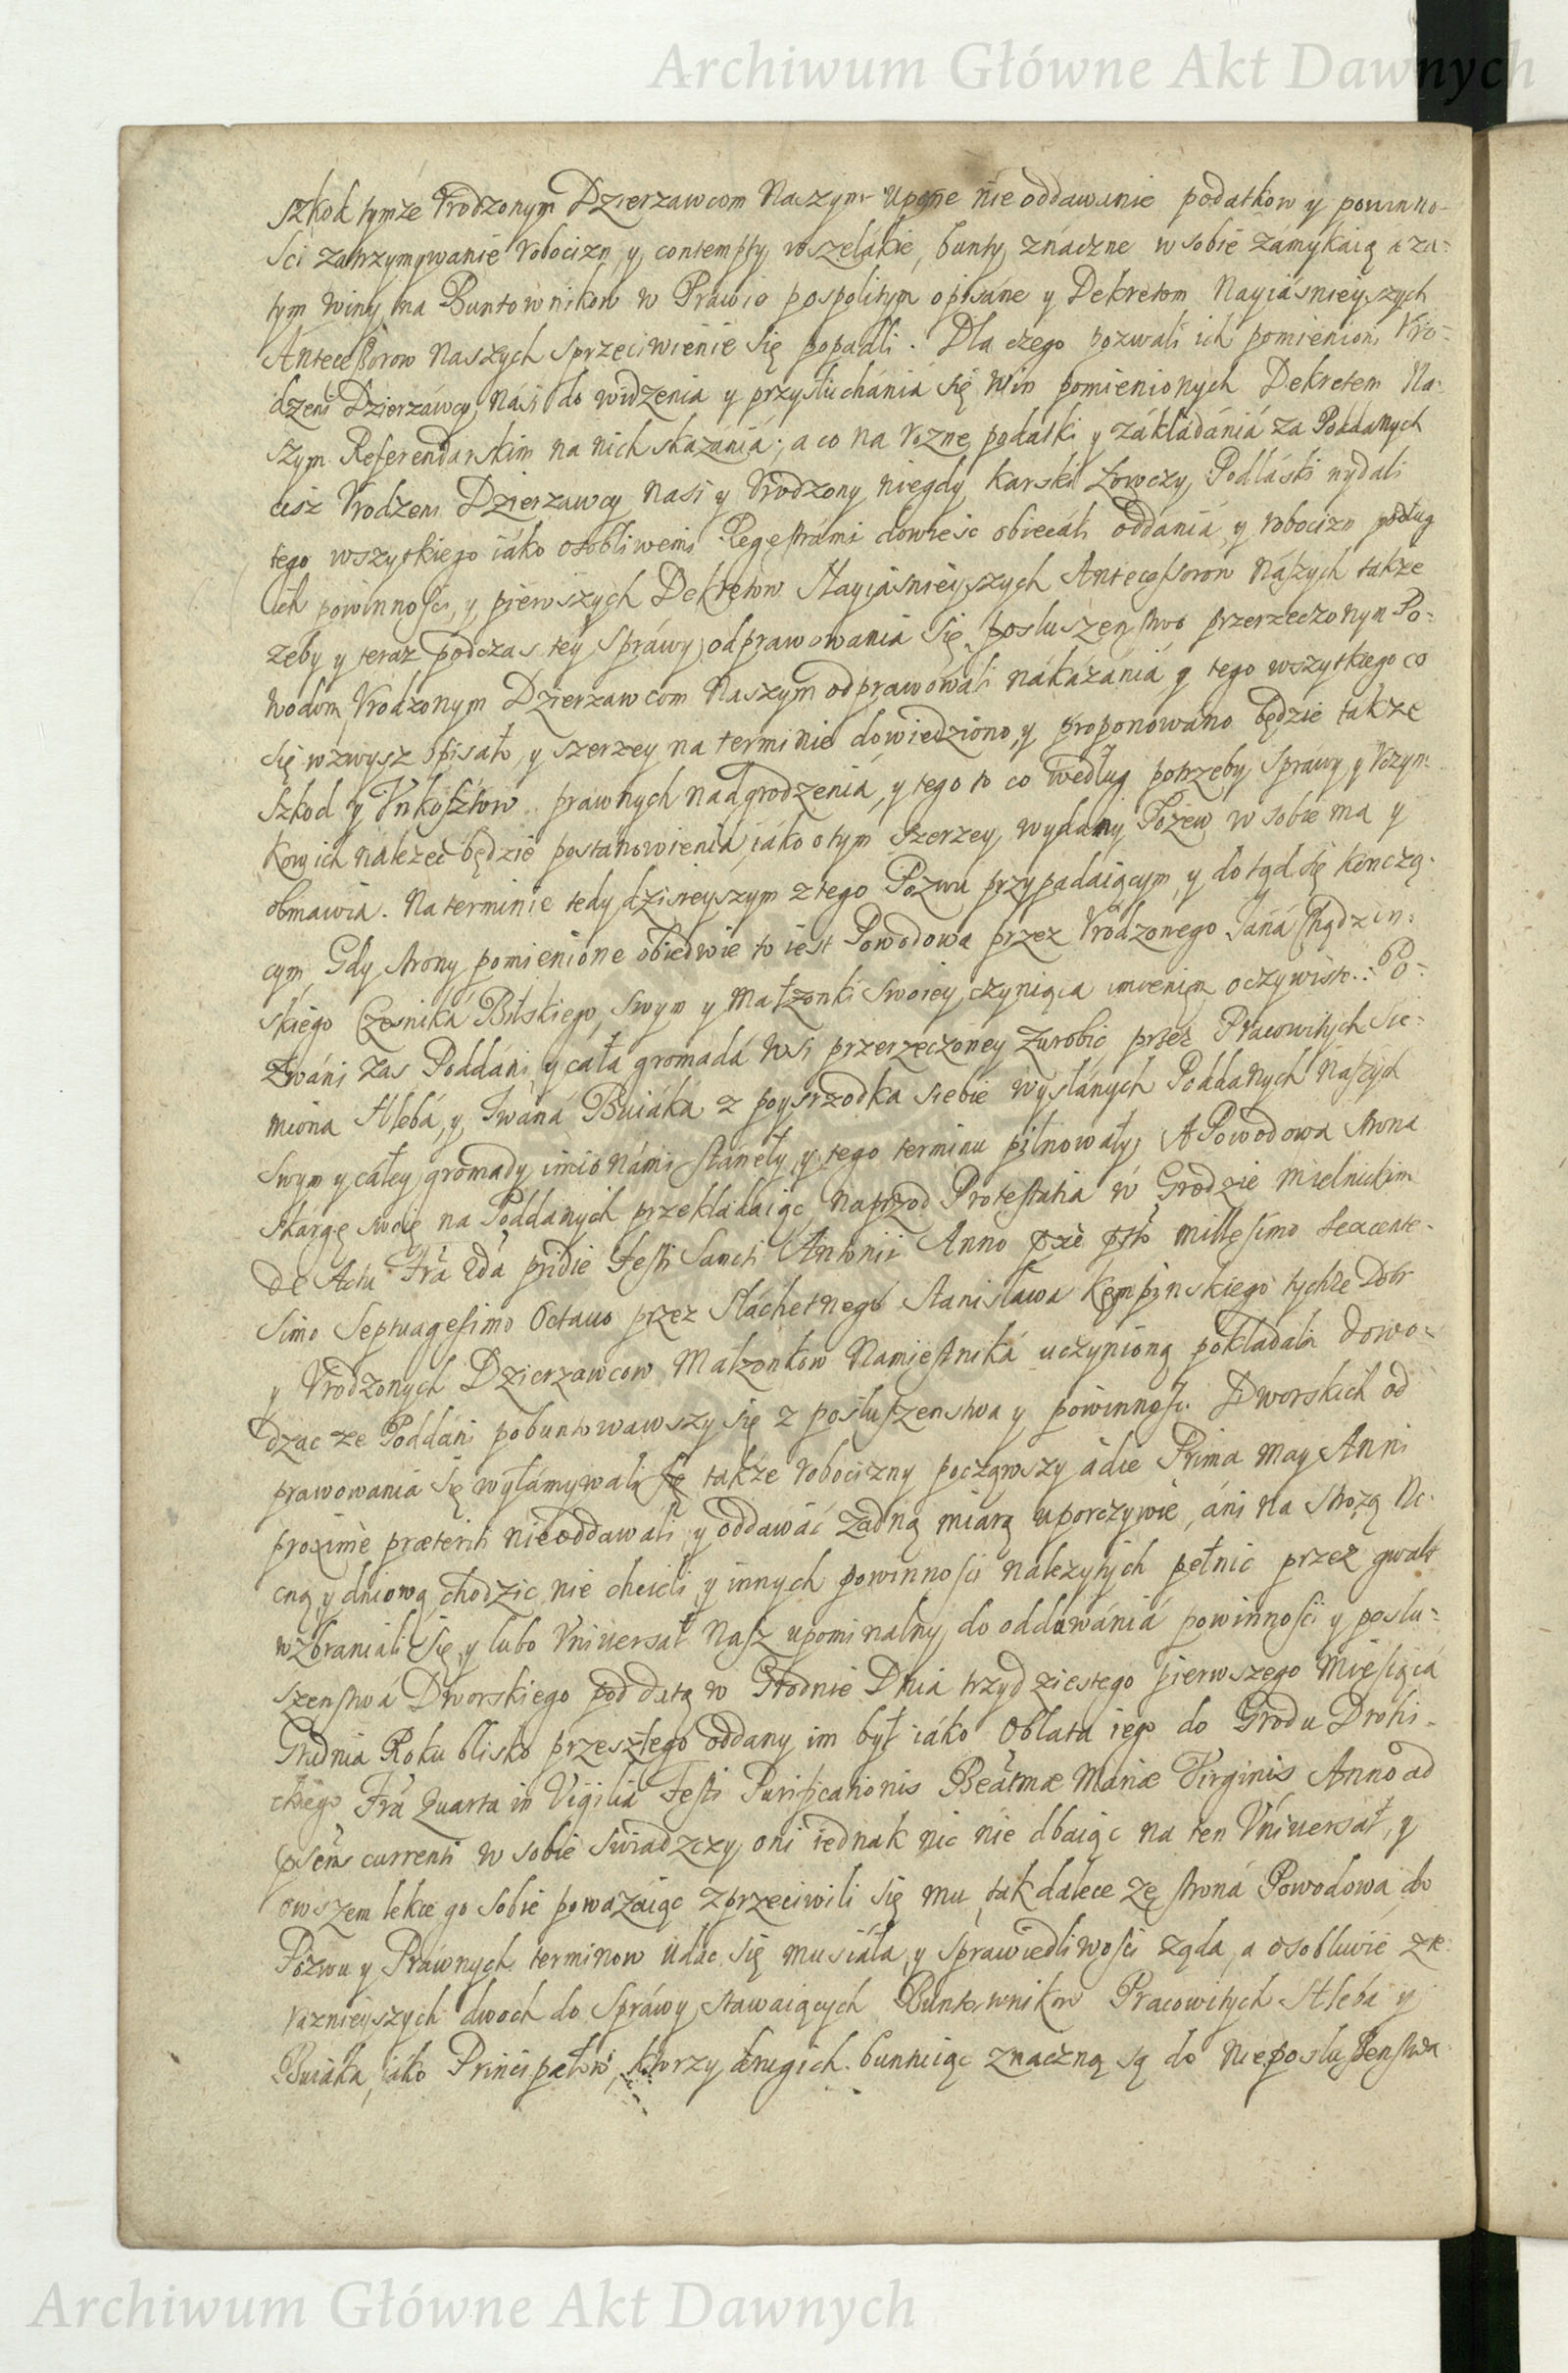 Archiwum Główne Akt Dawnych
szkod tymże Vrodzonym Dzierzawcom Naszym uporne nieoddawanie podatkow y powinno-
ści zatrzymywanie robocizn y contempty wszelákie, bunty znáczne w sobie zámykaią a za-
tym winy na Buntownikow w Práwie pospolitym opisáne y Dekretom Nayiásnieyszych
Antecessorow Naszych sprzeciwienie się popadli. Dla czego pozwali ich pomienioni Vro-
dzeni Dzierzáwcy Náśi do widzenia y przysłuchániá się win pomienionych Dekretem Na-
szym Referendarskim na nich skazániá; a co na rozne podatki y zákłádániá za Poddanych
ciśz Vrodzeni Dzierzawcy Naśi y Vrodzony niegdy Karski Łowczy Podláski wydali
tego wszytkiego iáko osobliwemi Regestrámi dowieść obiecáli oddániá y robocizn podług
ich powinności, y pierwszych Dekretow Nayiásnieyszych Antecessorow Nászych także
żeby y teraz podczas tey spráwy odprawowania się posłuszeństwo przerzeczonym Po-
wodom Vrodzonym Dzierzawcom Naszym odprawowáli nákazániá y tego wszytkiego co
się wzwysz opisáło y szerzey na terminie dowiedziono y proponowano będzie także
szkod y Vnkosztow prawnych nadgrodzeniá, y tego to co według potrzeby spráwy y vczyn-
kow ich náleżeć będzie postanowieniá, iáko o tym szerzey wydany Pozew w sobie ma y
obmawia. Na terminie tedy dzisieyszym z tego Pozwu przypadaiącym y dotąd się konczą-
cym, Gdy strony pomienione obiedwie to iest Powodowa przez Vrodzonego Janá Chądzyn-
skiego Czesniká Bilskiego, swym y Małżonki swoiey czyniącá imieniem oczywisto: Po-
zwáni zas Poddáni y cáła gromadá wsi przerzeczoney Zurobic przez Pracowitych Sie-
miona Hlebá, y Iwaná Buiáká z posrzodka siebie wysłánych Poddanych Nászych
swym y cáłey gromady imionámi stánęły y tego terminu pilnowáły, A Powodowa strona
skargę swoię na Poddanych przekłádaiąc, naprzod Protestatia w Grodzie Mielnickim
de Actu Fra 2da pridie Festi Sancti Antonii Anno millesimo sexcente-
simo Septuagesimo Octauo przez Slachetnego Stanisława Kempinskiego tychże Dobr
y Vrodzonych Dzierzawcow Małżonkow Namiestniká uczynioną pokładała dowo-
dząc że Poddáni pobuntowawszy się z posłuszenstwa y powinności Dworskich od
prawowania się wyłámywali się także robocizny począwszy a die Prima May Anni
proxime præteriti nieoddawáli y oddawáć żadną miarą uporczywie, áni na Strożą No-
cną y dniową chodzić nie chcieli y innych powinności należytych pełnić przez gwałt
wzbraniali się, y lubo Vniuersał Nasz upominalny do oddawániá powinności y posłu-
szenstwa Dworskiego pod datą w Grodnie Dnia trzydziestego pierwszego Miesiąca
Grudnia Roku blisko przeszłego oddany im był iáko Oblata iego do Grodu Drohi-
ckiego Fra Quarta in Vigilia Festi Purificationis Beatmæ Mariæ Virginis Anno ad
præsens currenti w sobie swiadczy, oni iednak nic nie dbaiąc na ten Vniuersał, y
owszem lekce go sobie poważáiąc zprzeciwili się mu, ták dálece że stroná Powodowa do
Pozwu y Práwnych terminow udác się musiáła, y sprawiedliwości żąda, a osobliwie ze
rażnieyszych dwoch do spráwy stawaiących Buntownikow Pracowitych Hlebá y
Buiáka, iáko Principałow, ktorzy drugich buntuiąc znaczną są do nieposłuszenstwa
Archiwum Główne Akt Dawnych